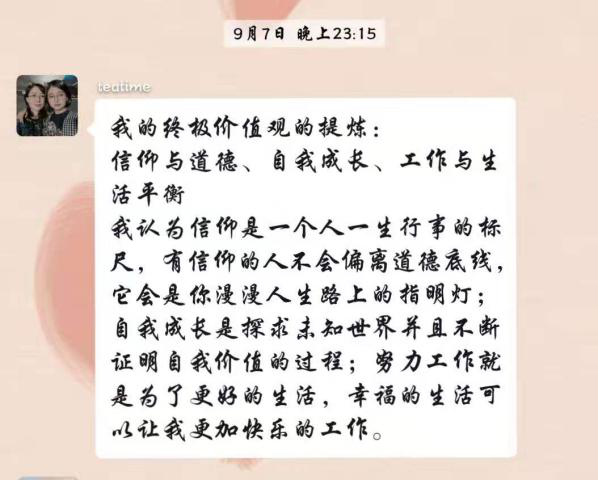 9月7日 晚上23:15
teatime
我的终极价值观的提炼：
信仰与道德、自我成长、工作与生
活平衡
我认为信仰是一个人一生行事的标
尺，有信仰的人不会偏离道德底线，
它会是你漫漫人生路上的指明灯；
自我成长是探求未知世界并且不断
证明自我价值的过程；努力工作就
是为了更好的生活，幸福的生活可
以让我更加快乐的工作。